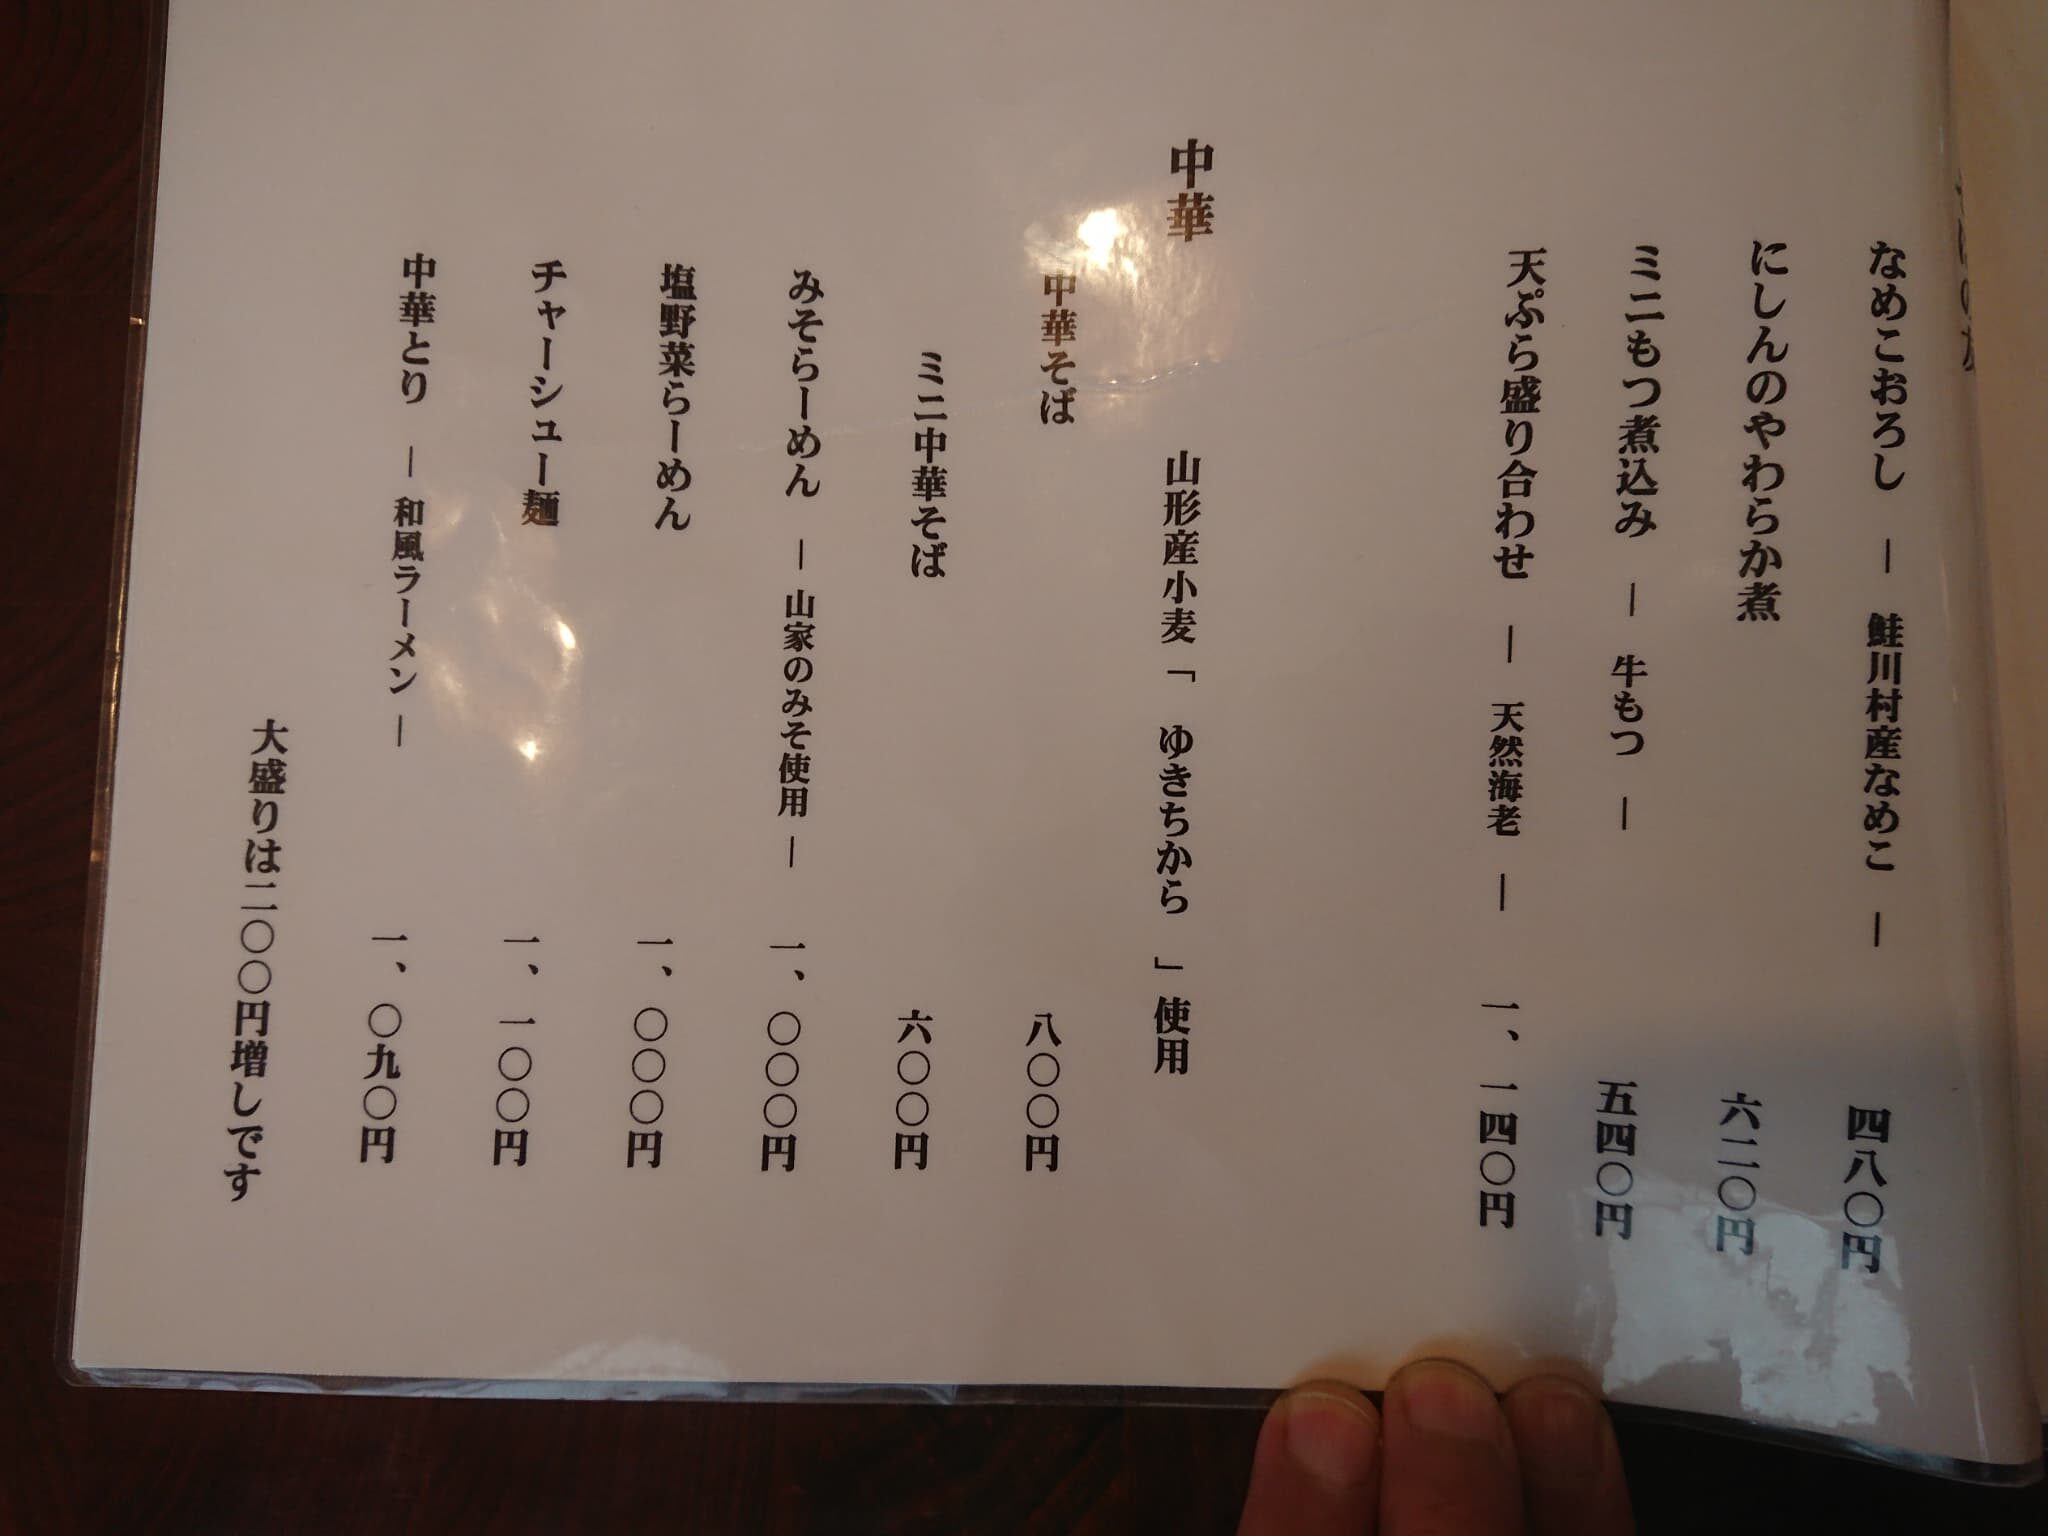 なめこおろし ― 鮭川村産なめこ ― 四八〇円
にしんのやわらか煮 六二〇円
ミニもつ煮込み ― 牛もつ ― 五四〇円
天ぷら盛り合わせ ― 天然海老 ― 一、一四〇円
中華 山形産小麦「 ゆきちから 」使用
中華そば 八〇〇円
ミニ中華そば 六〇〇円
みそらーめん ― 山家のみそ使用 ― 一、〇〇〇円
塩野菜らーめん 一、〇〇〇円
チャーシュー麺 一、一〇〇円
中華とり ― 和風ラーメン ― 一、〇九〇円
大盛りは二〇〇円増しです